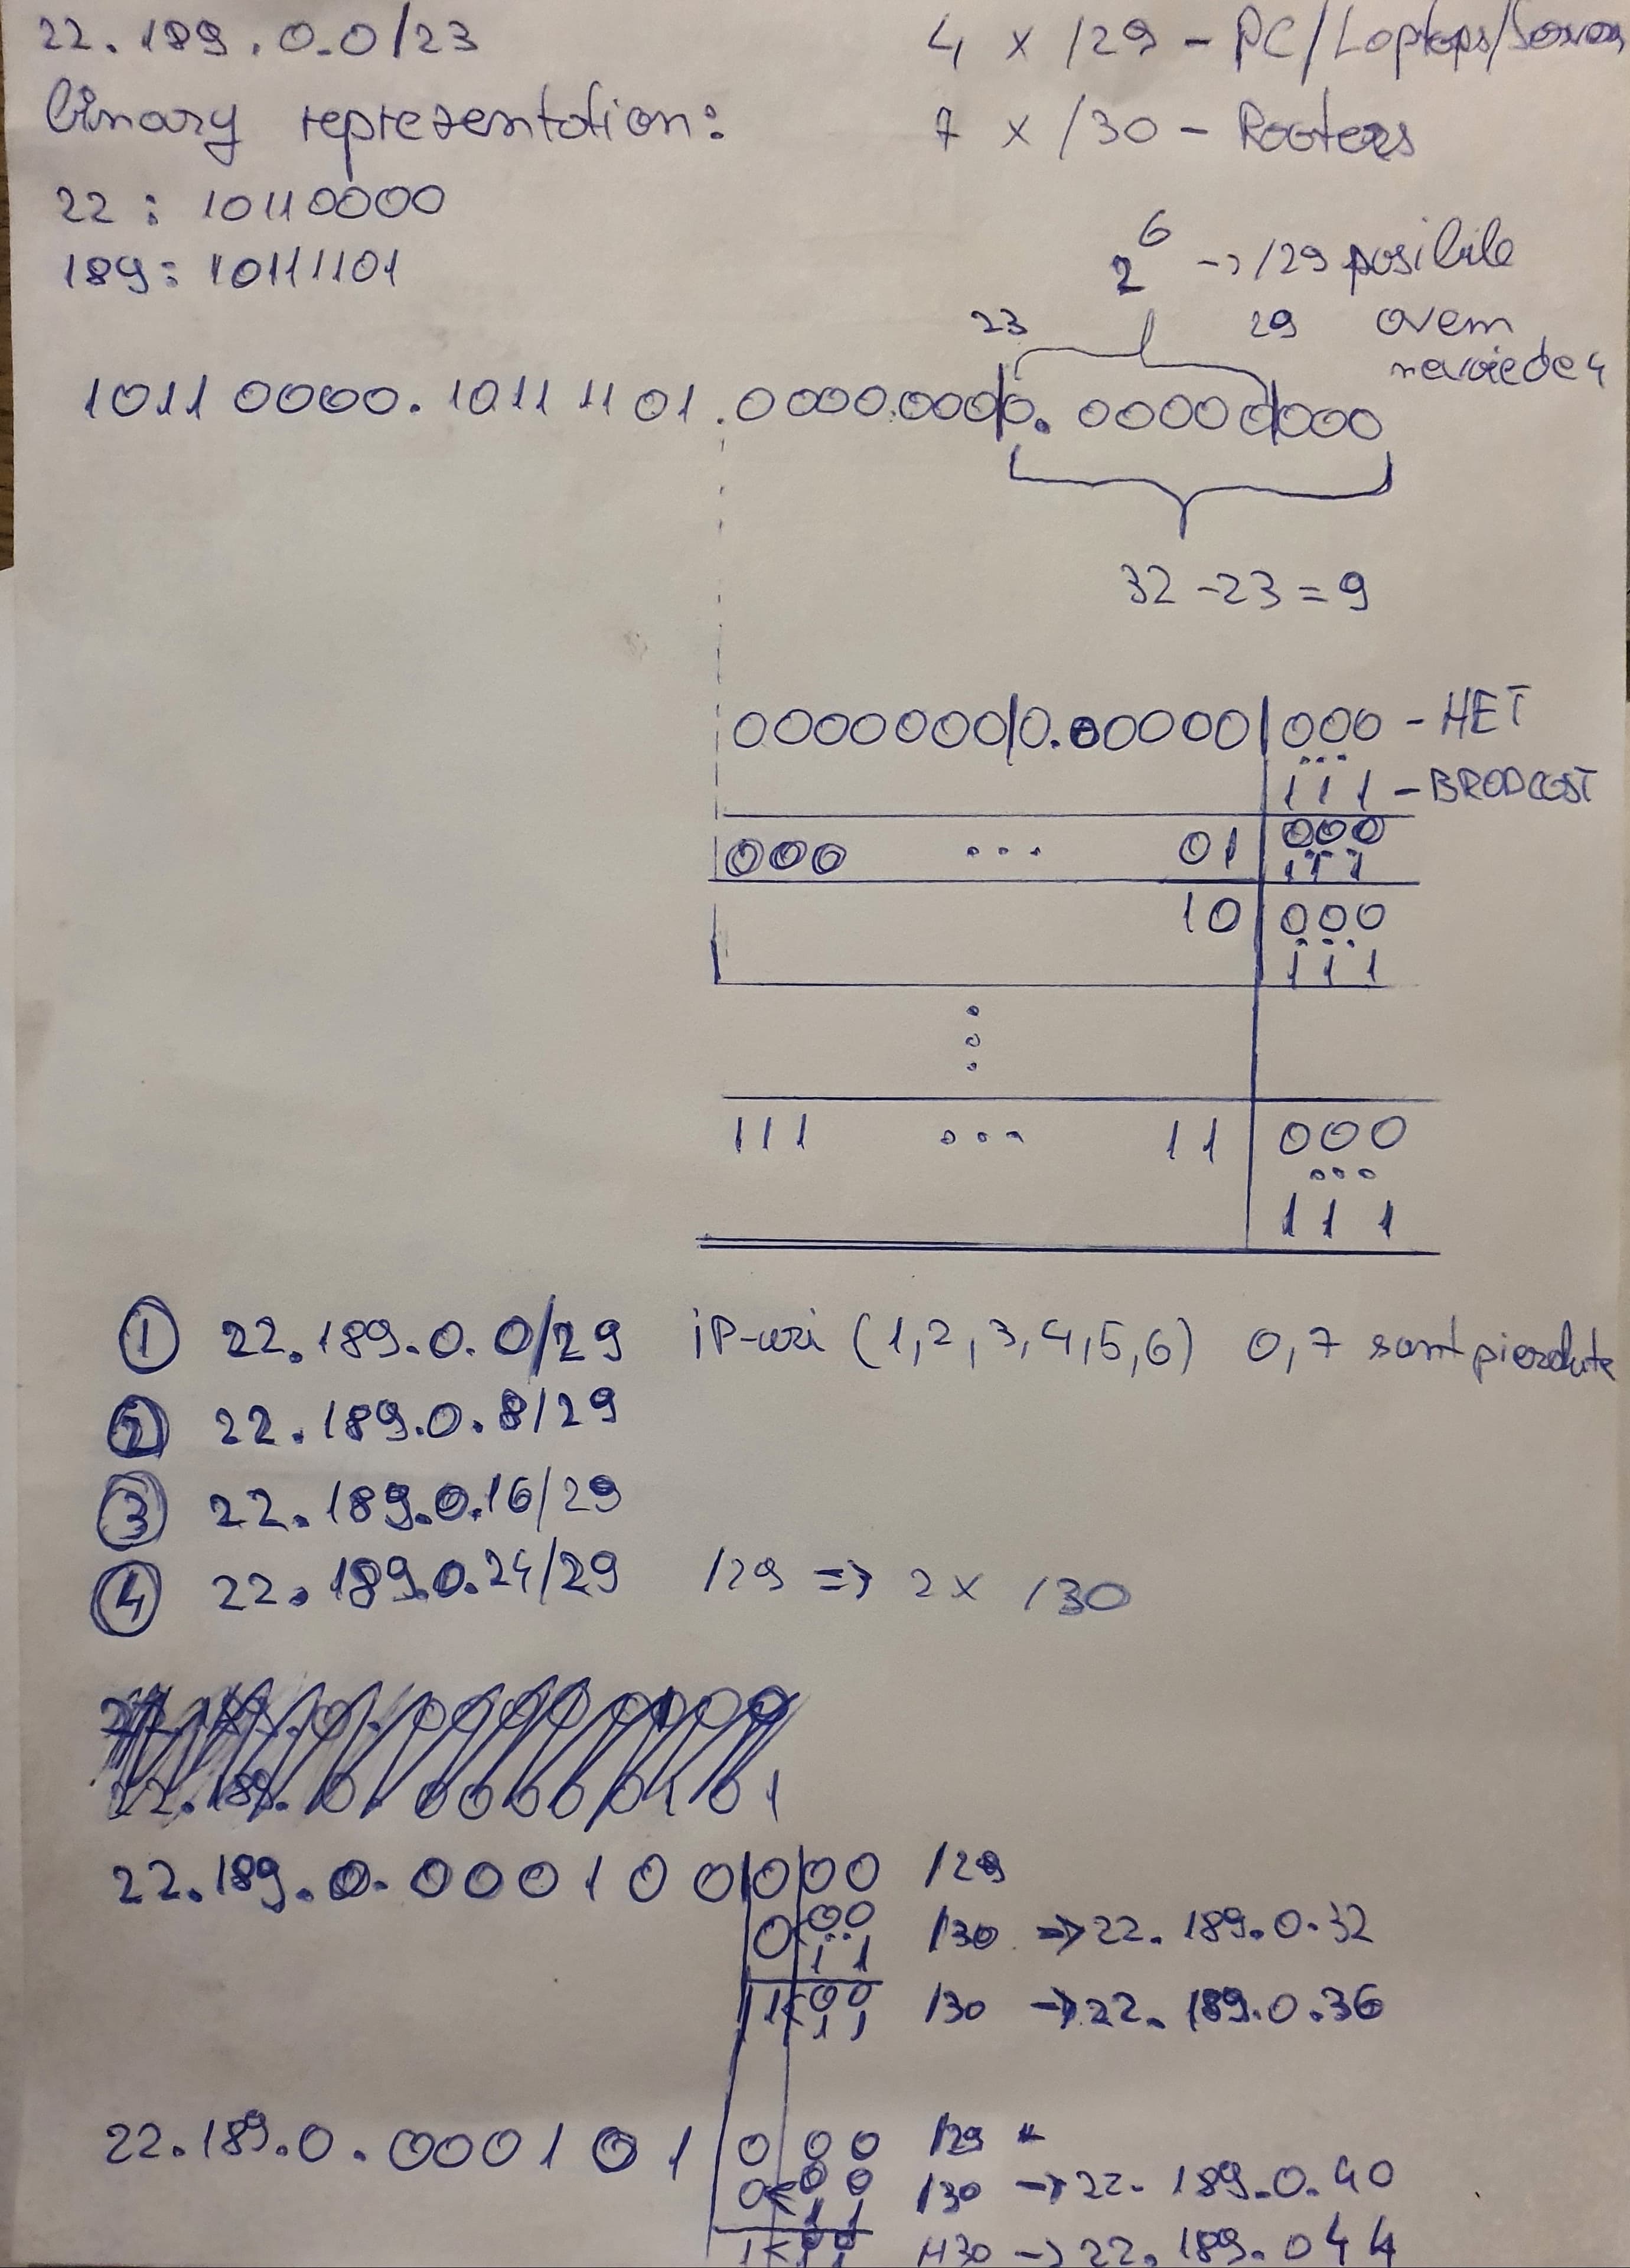 22.189.0.0/23
4 x /29 - PC/Laptops/
binary representation:
7 x /30 - Rooters
22 : 10110000
189: 10111101
2^6 -> /29 posibile
23 29 avem
nevoie de 4
10110000.10111101.0000000|0.00000|000
32 - 23 = 9
0000000|0.00000|000 - NET
...
111 - BRODCAST
000 ... 01 | 000
...
111
10 | 000
...
111
⋮
111 ... 11 | 000
...
111
① 22.189.0.0/29 IP-uri (1,2,3,4,5,6) 0,7 sunt pierdute
② 22.189.0.8/29
③ 22.189.0.16/29
④ 22.189.0.24/29 /29 => 2x /30
22.189.0.000100|0|00 /29
0<00 /30 => 22.189.0.32
..
11
1<00 /30 -> 22.189.0.36
11
22.189.0.000101|000 /29
0<00 /30 -> 22.189.0.40
11
1< /30 -> 22.189.044
11